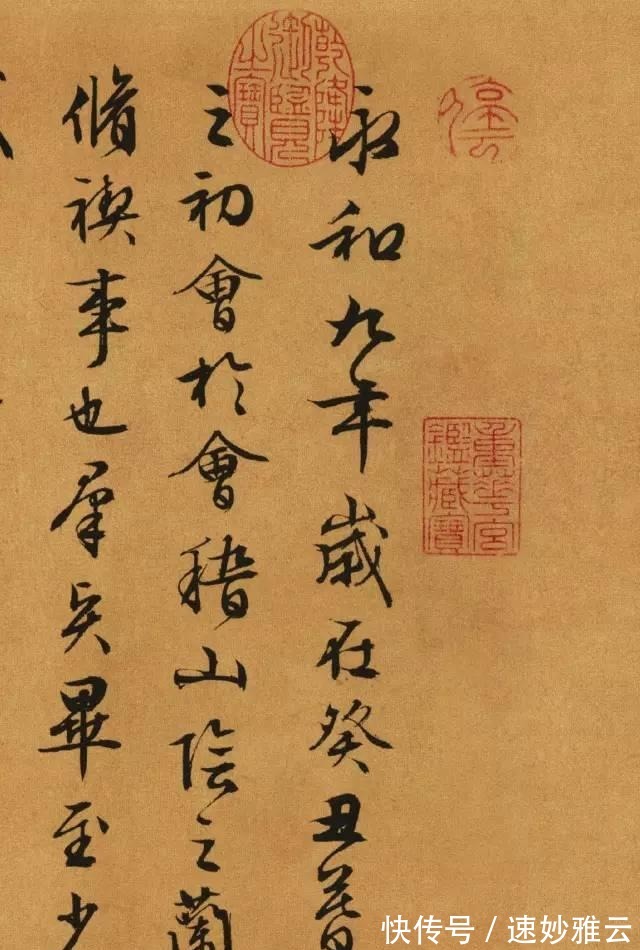 永和九年歲在癸丑暮
之初會於會稽山陰之蘭
脩禊事也羣賢畢至少
乾隆御覽之寶
重華宮鑑藏寶
快传号 / 速妙雅云